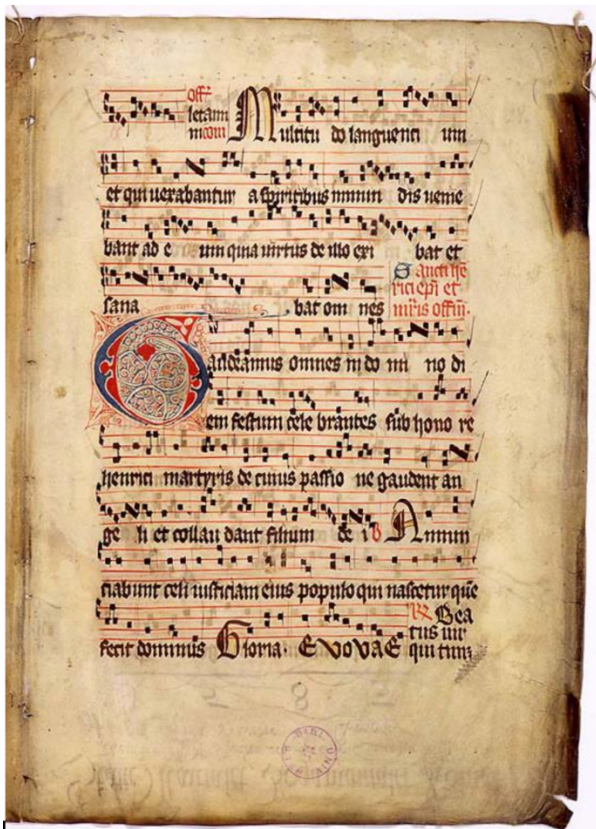 Offr
letami
ni com Multitu do languenti um
et qui uexabantur a spiritibus inmun dis uenie
bant ad e um quia uirtus de illo exi bat et
Sancti he
rici epi et
sana bat om nes mris offm.
Gaudeamus omnes in do mi no di
em festum cele brantes sub hono re
henrici martyris de cuius passio ne gaudent an
ge li et collau dant filium de i Annun
ciabunt celi iusticiam eius populo qui nascetur que
Bea
tus uir
fecit dominus Gloria. EVOVAE qui tim